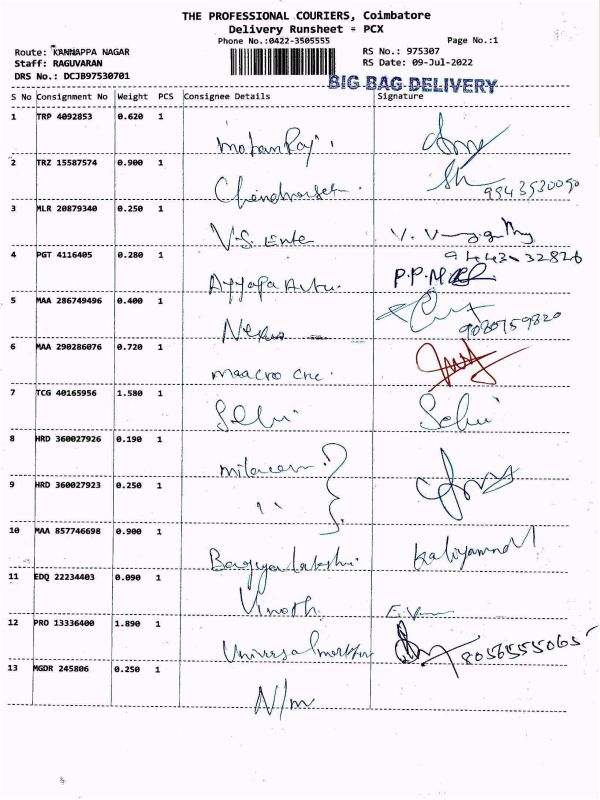 THE PROFESSIONAL COURIERS, Coimbatore
Delivery Runsheet - PCX
Phone No.:0422-3505555 Page No.:1
Route: KANNAPPA NAGAR RS No.: 975307
Staff: RAGUVARAN RS Date: 09-Jul-2022
DRS No.: DCJB97530701
BIG BAG DELIVERY
S No Consignment No Weight PCS Consignee Details Signature
1 TRP 4092853 0.620 1
MohanRaj
2 TRZ 15587574 0.900 1
Chandrasek
3 MLR 20879340 0.250 1
V.S. Ente
4 PGT 4116405 0.280 1
Ayyapa Auto. P.P.M
5 MAA 286749496 0.400 1
9080759820
6 MAA 290286076 0.720 1
maacro cnc.
7 TCG 40165956 1.580 1
Selvi Selvi
8 HRD 360027926 0.190 1
milacron
9 HRD 360027923 0.250 1
"
10 MAA 857746698 0.900 1
Bagyalakshmi Kaliyammal
11 EDQ 22234403 0.090 1
Vinoth
12 PRO 13336400 1.890 1
Universal 8056555065
13 MGDR 245806 0.250 1
N/m